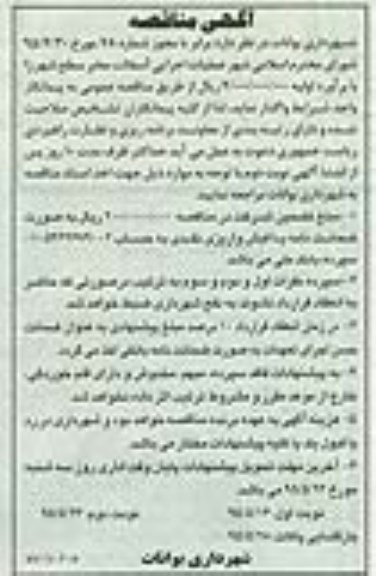 آگهی مناقصه
شهرداری بوانات در نظر دارد برابر با مجوز شماره مورخ
شورای محترم اسلامی شهر عملیات اجرایی آسفالت معابر سطح شهر را
با برآورد اولیه ریال از طریق مناقصه عمومی به پیمانکار
واجد شرایط واگذار نماید. لذا از کلیه پیمانکاران تشخیص صلاحیت
شده و دارای رتبه بندی از معاونت برنامه ریزی و نظارت راهبردی
ریاست جمهوری دعوت به عمل می آید حداکثر ظرف مدت ۱۰ روز پس
از انتشار آگهی نوبت دوم با توجه به موارد ذیل جهت اخذ اسناد مناقصه
به شهرداری بوانات مراجعه نمایند.
۱- مبلغ تضمین شرکت در مناقصه ریال به صورت
ضمانت نامه یا فیش واریزی نقدی به حساب
سپرده بانک ملی می باشد.
۲- سپرده نفرات اول و دوم و سوم به ترتیب در صورتی که حاضر
به انعقاد قرارداد نشوند به نفع شهرداری ضبط خواهد شد.
۳- در زمان انعقاد قرارداد ۱۰ درصد مبلغ پیشنهادی به عنوان ضمانت
حسن اجرای تعهدات به صورت ضمانت نامه بانکی اخذ می گردد.
۴- به پیشنهادات فاقد سپرده، مبهم، مخدوش و دارای قلم خوردگی،
خارج از موعد مقرر و مشروط ترتیب اثر داده نخواهد شد.
۵- هزینه آگهی به عهده برنده مناقصه خواهد بود و شهرداری در رد
یا قبول یک یا کلیه پیشنهادات مختار می باشد.
۶- آخرین مهلت تحویل پیشنهادات پایان وقت اداری روز سه شنبه
مورخ می باشد.
نوبت اول نوبت دوم
بازگشایی پاکات
شهرداری بوانات